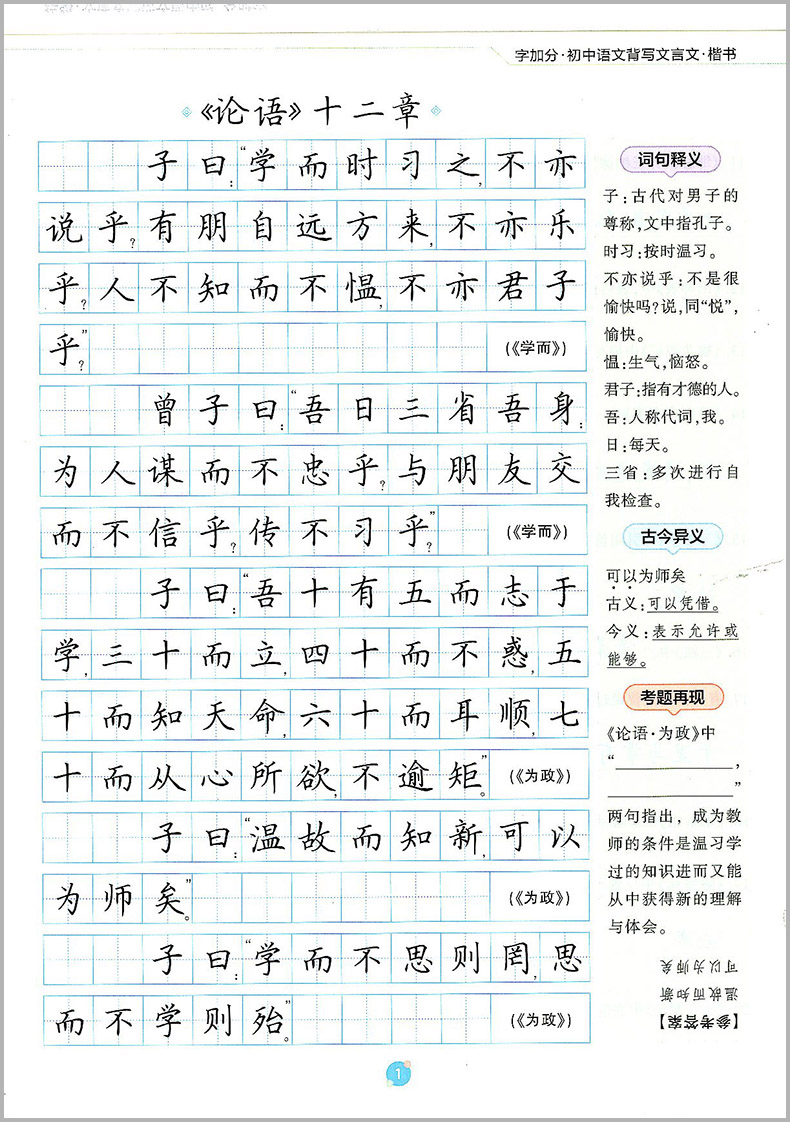 字加分·初中语文背写文言文·楷书
《论语》十二章
子曰：“学而时习之，不亦
说乎？有朋自远方来，不亦乐
乎？人不知而不愠，不亦君子
乎？” （《学而》）
曾子曰：“吾日三省吾身：
为人谋而不忠乎？与朋友交
而不信乎？传不习乎？” （《学而》）
子曰：“吾十有五而志于
学，三十而立，四十而不惑，五
十而知天命，六十而耳顺，七
十而从心所欲，不逾矩。” （《为政》）
子曰：“温故而知新，可以
为师矣。” （《为政》）
子曰：“学而不思则罔，思
而不学则殆。” （《为政》）
词句释义
子：古代对男子的
尊称，文中指孔子。
时习：按时温习。
不亦说乎：不是很
愉快吗？说，同“悦”，
愉快。
愠：生气，恼怒。
君子：指有才德的人。
吾：人称代词，我。
日：每天。
三省：多次进行自
我检查。
古今异义
可以为师矣
古义：可以凭借。
今义：表示允许或
能够。
考题再现
《论语·为政》中
“____________，
____________”
两句指出，成为教
师的条件是温习学
过的知识进而又能
从中获得新的理解
与体会。
【参考答案】
温故而知新
可以为师矣
1